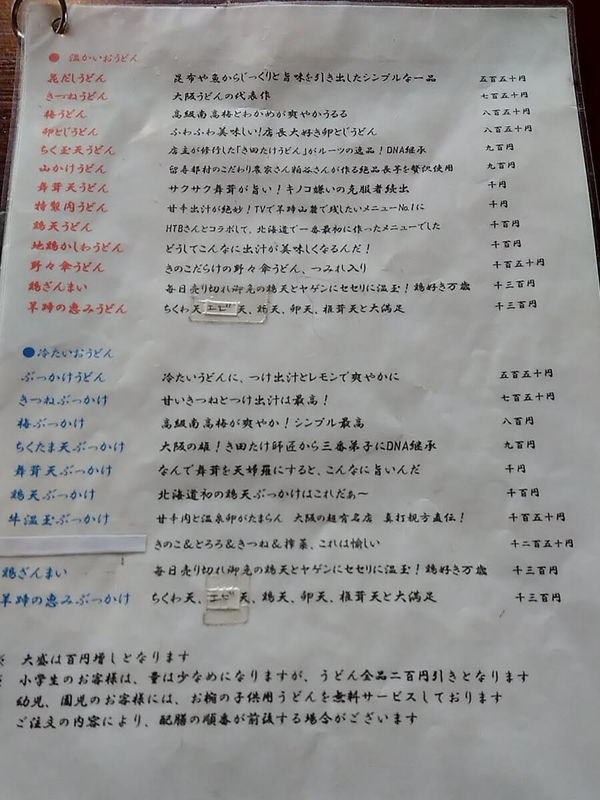 ● 温かいおうどん
昆だしうどん 昆布や魚からじっくりと旨味を引き出したシンプルな一品 五百五十円
きつねうどん 大阪うどんの代表作 七百五十円
梅うどん 高級南高梅とわかめが爽やかうるる 八百五十円
卵とじうどん ふわふわ美味しい!店長大好き卵とじうどん 八百五十円
ちく玉天うどん 店主が修行した「き田たけうどん」がルーツの逸品!DNA継承 九百円
山かけうどん 留寿都村のこだわり農家さん粕谷さんが作る絶品長芋を贅沢使用 九百円
舞茸天うどん サクサク舞茸が旨い!キノコ嫌いの克服者続出 千円
特製肉うどん 甘辛出汁が絶妙!TVで羊蹄山麓で残したいメニューNo.1に 千円
鶏天うどん HTBさんとコラボして、北海道で一番最初に作ったメニューでした 千百円
地鶏かしわうどん どうしてこんなに出汁が美味しくなるんだ! 千百円
野々傘うどん きのこだらけの野々傘うどん、つみれ入り 千百五十円
鶏ざんまい 毎日売り切れ御免の鶏天とヤゲンにセセリに温玉!鶏好き万歳 千三百円
羊蹄の恵みうどん ちくわ天、エビ天、鶏天、卵天、椎茸天と大満足 千三百円
●冷たいおうどん
ぶっかけうどん 冷たいうどんに、つけ出汁とレモンで爽やかに 五百五十円
きつねぶっかけ 甘いきつねとつけ出汁は最高! 七百五十円
梅ぶっかけ 高級南高梅が爽やか!シンプル最高 八百円
ちくたま天ぶっかけ 大阪の雄!き田たけ師匠から三番弟子にDNA継承 九百円
舞茸天ぶっかけ なんで舞茸を天婦羅にすると、こんなに旨いんだ 千円
鶏天ぶっかけ 北海道初の鶏天ぶっかけはこれだぁ〜 千百円
牛温玉ぶっかけ 甘辛肉と温泉卵がたまらん 大阪の超有名店 真打親方直伝! 千百五十円
きのこ&とろろ&きつね&搾菜、これは愉しい 千二百五十円
鶏ざんまい 毎日売り切れ御免の鶏天とヤゲンにセセリに温玉!鶏好き万歳 千三百円
羊蹄の恵みぶっかけ ちくわ天、エビ天、鶏天、卵天、椎茸天と大満足 千三百円
※ 大盛は百円増しとなります
※ 小学生のお客様は、量は少なめになりますが、うどん全品二百円引きとなります
幼児、園児のお客様には、お椀の子供用うどんを無料サービスしております
ご注文の内容により、配膳の順番が前後する場合がございます